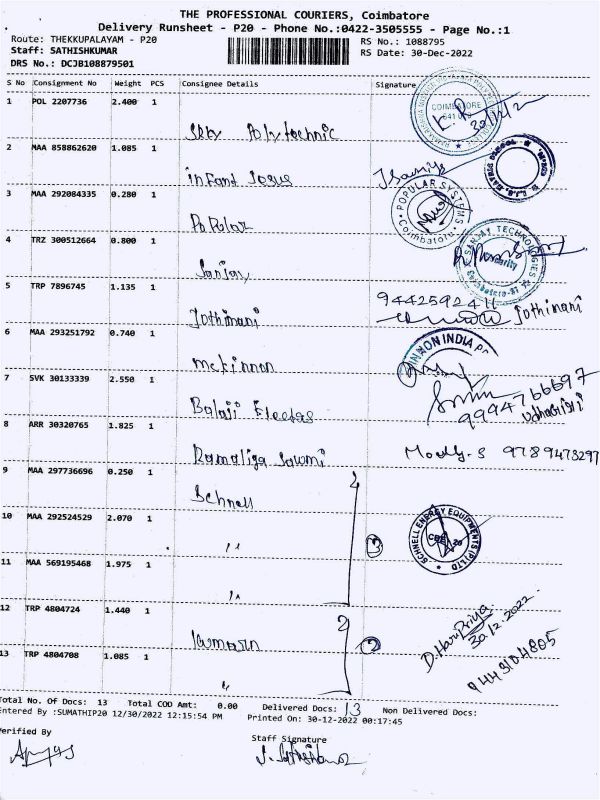 THE PROFESSIONAL COURIERS, Coimbatore
Delivery Runsheet - P20 - Phone No.:0422-3505555 - Page No.:1
Route: THEKKUPALAYAM - P20
RS No.: 1088795
Staff: SATHISHKUMAR
RS Date: 30-Dec-2022
DRS No.: DCJB108879501
S No Consignment No Weight PCS Consignee Details Signature
1 POL 2207736 2.400 1
COIMBATORE
641 0
Polytechnic
2 MAA 858862620 1.085 1
infant Jesus
3 MAA 292084335 0.280 1
POPULAR SYSTEMS
Coimbatore
PoPular
4 TRZ 300512664 0.800 1
SANJAY TECHNOLOGIES
Coimbatore-
Sanjay
5 TRP 7896745 1.135 1
9442592411
Jothimani
Jothimani
6 MAA 293251792 0.740 1
INNON INDIA P
mckinnon
7 SVK 30133339 2.550 1
9994766697
Balaji Electas
8 ARR 30320765 1.825 1
Ramaliga Sawmi
9789473297
9 MAA 297736696 0.250 1
Schnell
10 MAA 292524529 2.070 1
SCHNELL ENERGY EQUIPMENTS (P) LTD
CBE 20
"
3
11 MAA 569195468 1.975 1
"
12 TRP 4804724 1.440 1
D. HariPriya
30.12.2022
2
13 TRP 4804708 1.085 1
9443104805
"
Total No. Of Docs: 13 Total COD Amt: 0.00 Delivered Docs: 13 Non Delivered Docs:
Entered By :SUMATHIP20 12/30/2022 12:15:54 PM Printed On: 30-12-2022 00:17:45
Verified By
Staff Signature